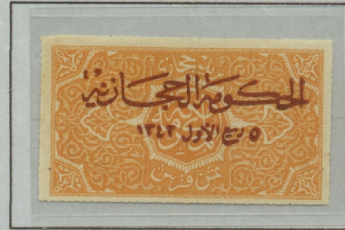 الحكومة الحجازية
٥ ربيع الأول ١٣٤٣
ثمن قرش